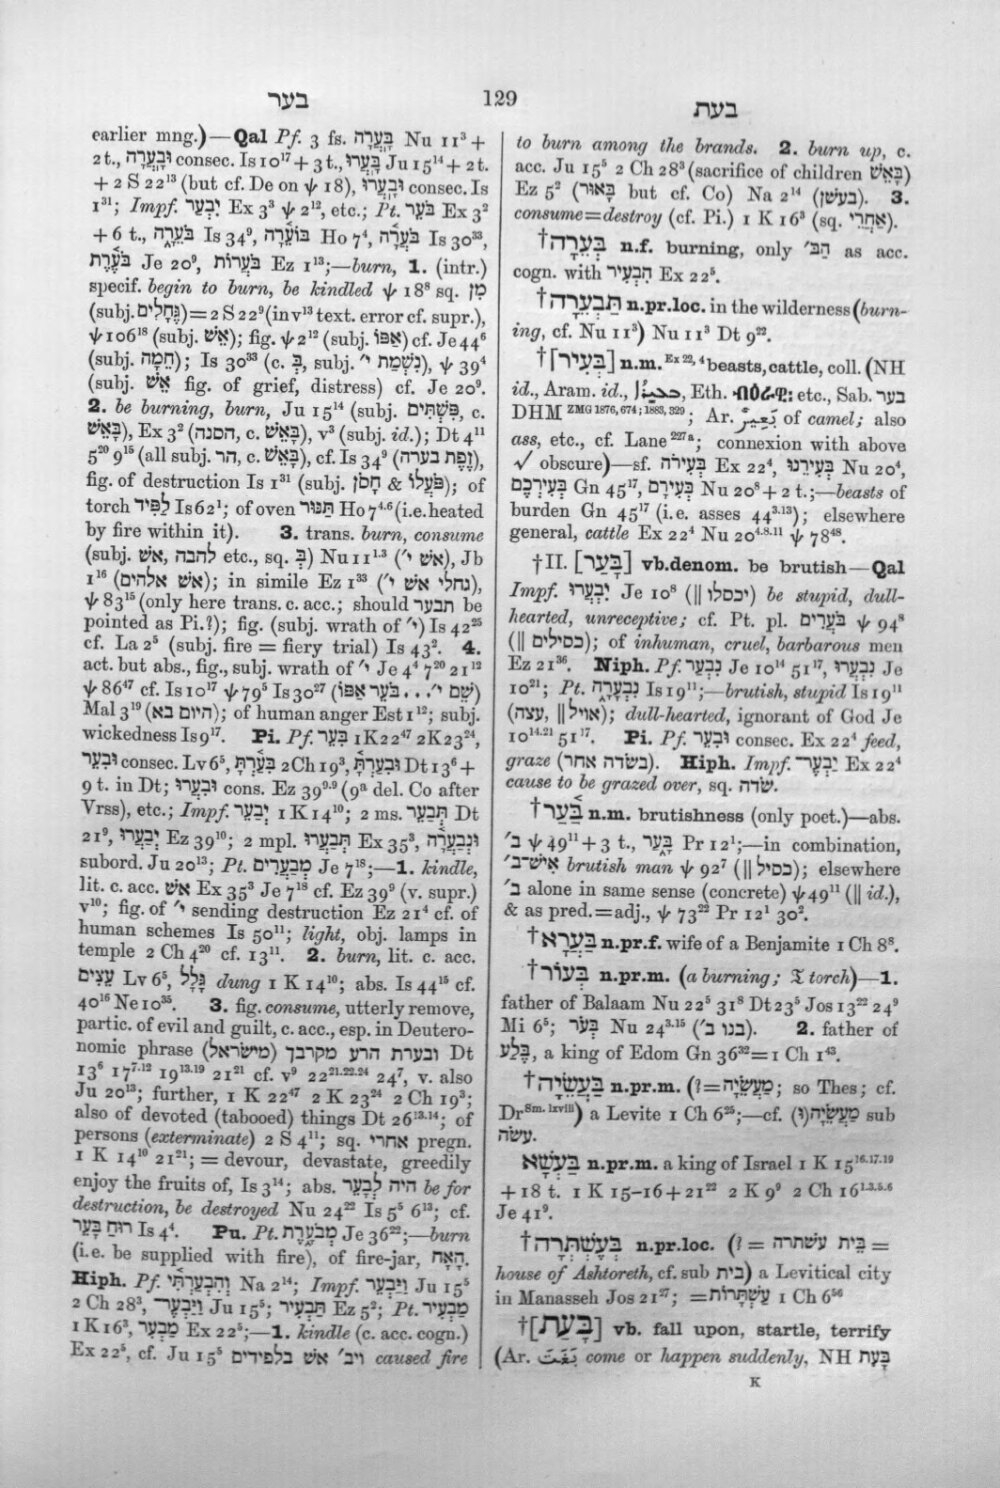 בער
129
בעת
earlier mng.)—Qal Pf. 3 fs. בָּעֲרָה Nu 11³ +
2 t., וּבָעֲרָה consec. Is 10¹⁷ + 3 t., בָּעֲרוּ Ju 15¹⁴ + 2 t.
+ 2 S 22¹³ (but cf. De on ψ 18), וּבָעֲרוּ consec. Is
1³¹; Impf. יִבְעַר Ex 3³ ψ 2¹², etc.; Pt. בֹּעֵר Ex 3²
+ 6 t., בֹּעֵרָה Is 34⁹, בּוֹעֵרָה Ho 7⁴, בֹּעֲרָה Is 30³³,
בֹּעֶרֶת Je 20⁹, בֹּעֲרוֹת Ez 1¹³;—burn, 1. (intr.)
specif. begin to burn, be kindled ψ 18⁸ sq. מִן
(subj. גֶּחָלִים) = 2 S 22⁹ (in v¹³ text. error cf. supr.),
ψ 106¹⁸ (subj. אֵשׁ); fig. ψ 2¹² (subj. אַפּוֹ) cf. Je 44⁶
(subj. חֵמָה); Is 30³³ (c. בְּ, subj. נִשְׁמַת י׳), ψ 39⁴
(subj. אֵשׁ fig. of grief, distress) cf. Je 20⁹.
2. be burning, burn, Ju 15¹⁴ (subj. פִּשְׁתִּים, c.
בָּאֵשׁ), Ex 3² (הסנה, c. בָּאֵשׁ), v³ (subj. id.); Dt 4¹¹
5²⁰ 9¹⁵ (all subj. הר, c. בָּאֵשׁ), cf. Is 34⁹ (זֶפֶת בערה),
fig. of destruction Is 1³¹ (subj. חָסֹן & פֹּעֲלוֹ); of
torch לַפִּיד Is 62¹; of oven תַּנּוּר Ho 7⁴·⁶ (i.e. heated
by fire within it). 3. trans. burn, consume
(subj. אֵשׁ, להבה etc., sq. בְּ) Nu 11¹·³ (אשׁ י׳), Jb
1¹⁶ (אשׁ אלהים); in simile Ez 1³³ (נחלי אשׁ י׳),
ψ 83¹⁵ (only here trans. c. acc.; should תבער be
pointed as Pi.?); fig. (subj. wrath of י׳) Is 42²⁵
cf. La 2⁵ (subj. fire = fiery trial) Is 43². 4.
act. but abs., fig., subj. wrath of י׳ Je 4⁴ 7²⁰ 21¹²
ψ 86⁴⁷ cf. Is 10¹⁷ ψ 79⁵ Is 30²⁷ (שֵׁם י׳...בֹּעֵר אַפּוֹ)
Mal 3¹⁹ (היום בא); of human anger Est 1¹²; subj.
wickedness Is 9¹⁷. Pi. Pf. בִּעֵר 1 K 22⁴⁷ 2 K 23²⁴,
וּבִעֵר consec. Lv 6⁵, בִּעַרְתָּ 2 Ch 19³, וּבִעַרְתָּ Dt 13⁶ +
9 t. in Dt; וּבִעֲרוּ cons. Ez 39⁹·⁹ (9ᵃ del. Co after
Vrss), etc.; Impf. יְבַעֵר 1 K 14¹⁰; 2 ms. תְּבַעֵר Dt
21⁹, יְבַעֲרוּ Ez 39¹⁰; 2 mpl. תְּבַעֲרוּ Ex 35³, וּנְבַעֲרָה
subord. Ju 20¹³; Pt. מְבַעֲרִים Je 7¹⁸;—1. kindle,
lit. c. acc. אשׁ Ex 35³ Je 7¹⁸ cf. Ez 39⁹ (v. supr.)
v¹⁰; fig. of י׳ sending destruction Ez 21⁴ cf. of
human schemes Is 50¹¹; light, obj. lamps in
temple 2 Ch 4²⁰ cf. 13¹¹. 2. burn, lit. c. acc.
עֵצִים Lv 6⁵, גָּלָל dung 1 K 14¹⁰; abs. Is 44¹⁵ cf.
40¹⁶ Ne 10³⁵. 3. fig. consume, utterly remove,
partic. of evil and guilt, c. acc., esp. in Deutero-
nomic phrase ובערת הרע מקרבך (מישראל) Dt
13⁶ 17⁷·¹² 19¹³·¹⁹ 21²¹ cf. v⁹ 22²¹·²²·²⁴ 24⁷, v. also
Ju 20¹³; further, 1 K 22⁴⁷ 2 K 23²⁴ 2 Ch 19³;
also of devoted (tabooed) things Dt 26¹³·¹⁴; of
persons (exterminate) 2 S 4¹¹; sq. אחרי pregn.
1 K 14¹⁰ 21²¹; = devour, devastate, greedily
enjoy the fruits of, Is 3¹⁴; abs. היה לְבָעֵר be for
destruction, be destroyed Nu 24²² Is 5⁵ 6¹³; cf.
רוּחַ בָּעֵר Is 4⁴. Pu. Pt. מְבֹעֶרֶת Je 36²²;—burn
(i.e. be supplied with fire), of fire-jar, הָאָח.
Hiph. Pf. וְהִבְעַרְתִּי Na 2¹⁴; Impf. וַיַּבְעֵר Ju 15⁵
2 Ch 28³, וַיַּבְעֶר־ Ju 15⁵; תַּבְעִיר Ez 5²; Pt. מַבְעִיר
1 K 16³, מַבְעִר Ex 22⁵;—1. kindle (c. acc. cogn.)
Ex 22⁵, cf. Ju 15⁵ ויב׳ אשׁ בלפידים caused fire
to burn among the brands. 2. burn up, c.
acc. Ju 15⁵ 2 Ch 28³ (sacrifice of children בָּאֵשׁ)
Ez 5² (בָּאוּר but cf. Co) Na 2¹⁴ (בעשׁן). 3.
consume = destroy (cf. Pi.) 1 K 16³ (sq. אַחֲרֵי).
†בְּעֵרָה n.f. burning, only הַבּ׳ as acc.
cogn. with הִבְעִיר Ex 22⁵.
†תַּבְעֵרָה n.pr.loc. in the wilderness (burn-
ing, cf. Nu 11³) Nu 11³ Dt 9²².
†[בְּעִיר] n.m. Ex 22, 4 beasts, cattle, coll. (NH
id., Aram. id., Eth. etc., Sab. בער
DHM ZMG 1876, 674; 1883, 329; Ar. بَعِيرٌ of camel; also
ass, etc., cf. Lane 227a; connexion with above
√ obscure)—sf. בְּעִירֹה Ex 22⁴, בְּעִירֵנוּ Nu 20⁴,
בְּעִירְכֶם Gn 45¹⁷, בְּעִירָם Nu 20⁸ + 2 t.;—beasts of
burden Gn 45¹⁷ (i.e. asses 44³·¹³); elsewhere
general, cattle Ex 22⁴ Nu 20⁴·⁸·¹¹ ψ 78⁴⁸.
†II. [בָּעַר] vb.denom. be brutish—Qal
Impf. יִבְעֲרוּ Je 10⁸ (‖ יכסלו) be stupid, dull-
hearted, unreceptive; cf. Pt. pl. בֹּעֲרִים ψ 94⁸
(‖ כסילים); of inhuman, cruel, barbarous men
Ez 21³⁶. Niph. Pf. נִבְעַר Je 10¹⁴ 51¹⁷, נִבְעֲרוּ Je
10²¹; Pt. נִבְעָרָה Is 19¹¹;—brutish, stupid Is 19¹¹
(עצה, ‖ אויל); dull-hearted, ignorant of God Je
10¹⁴·²¹ 51¹⁷. Pi. Pf. וּבִעֵר consec. Ex 22⁴ feed,
graze (בשׂדה אחר). Hiph. Impf. יַבְעֶר־ Ex 22⁴
cause to be grazed over, sq. שׂדה.
†בַּעַר n.m. brutishness (only poet.)—abs.
ב׳ ψ 49¹¹ + 3 t., בָּעַר Pr 12¹;—in combination,
אִישׁ־ב׳ brutish man ψ 92⁷ (‖ כסיל); elsewhere
ב׳ alone in same sense (concrete) ψ 49¹¹ (‖ id.),
& as pred. = adj., ψ 73²² Pr 12¹ 30².
†בַּעֲרָא n.pr.f. wife of a Benjamite 1 Ch 8⁸.
†בְּעוֹר n.pr.m. (a burning; 𝔗 torch)—1.
father of Balaam Nu 22⁵ 31⁸ Dt 23⁵ Jos 13²² 24⁹
Mi 6⁵; בְּעֹר Nu 24³·¹⁵ (בנו ב׳). 2. father of
בֶּלַע, a king of Edom Gn 36³² = 1 Ch 1⁴³.
†בַּעֲשֵׂיָה n.pr.m. (? = מַעֲשֵׂיָה; so Thes; cf.
Dr Sm. lxviii) a Levite 1 Ch 6²⁵;—cf. מַעֲשֵׂיָה(וּ) sub
עשׂה.
בַּעְשָׁא n.pr.m. a king of Israel 1 K 15¹⁶·¹⁷·¹⁹
+ 18 t. 1 K 15–16 + 21²² 2 K 9⁹ 2 Ch 16¹·³·⁵·⁶
Je 41⁹.
†בְּעֶשְׁתְּרָה n.pr.loc. (? = בֵּית עשׁתרה =
house of Ashtoreth, cf. sub בית) a Levitical city
in Manasseh Jos 21²⁷; = עַשְׁתָּרוֹת 1 Ch 6⁵⁶
†[בָּעַת] vb. fall upon, startle, terrify
(Ar. بَغَتَ come or happen suddenly, NH בָּעַת
K